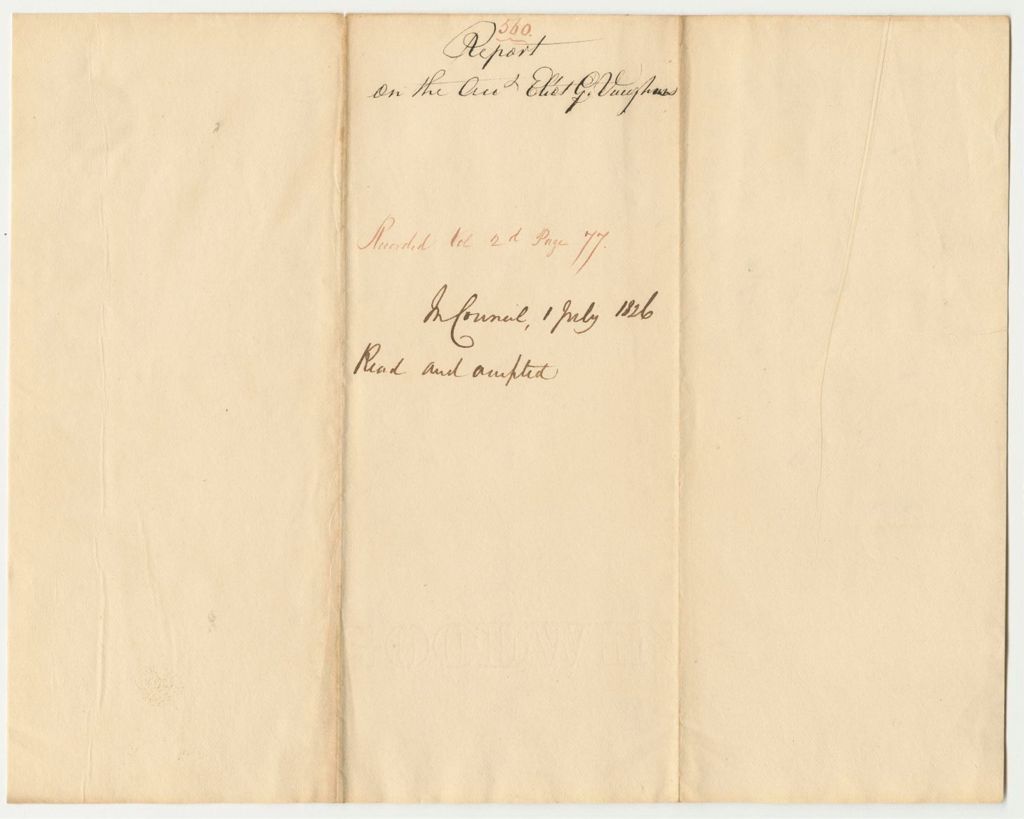 560.
Report
on the Acct Eliot G. Vaughan
Recorded Vol 2d Page 77.
In Council, 1 July 1826
Read and accepted